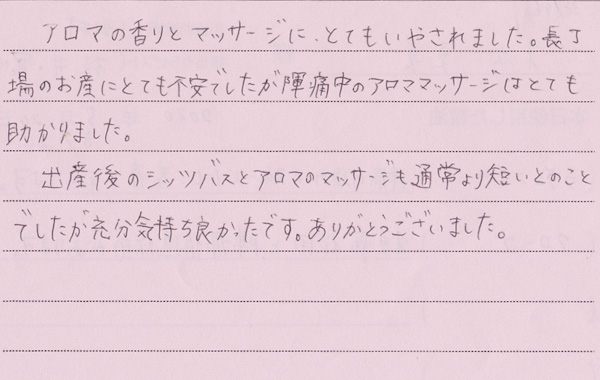 アロマの香りとマッサージに、とてもいやされました。長丁
場のお産にとても不安でしたが陣痛中のアロママッサージはとても
助かりました。
出産後のシッツバスとアロマのマッサージも通常より短いとのこと
でしたが充分気持ち良かったです。ありがとうございました。